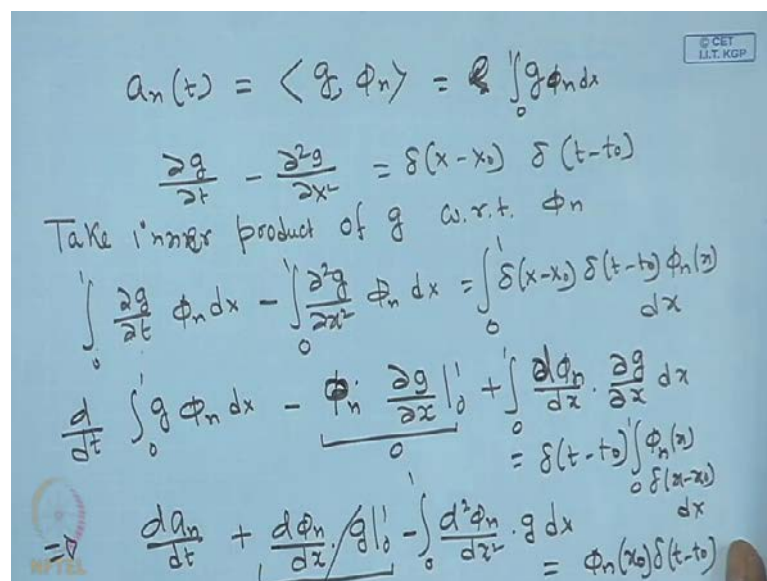 © CET
I.I.T. KGP
aₙ(t) = ⟨g, φₙ⟩ = ∫₀¹ g φₙ dx
∂g/∂t - ∂²g/∂x² = δ(x-x₀) δ(t-t₀)
Take inner product of g w.r.t. φₙ
∫₀¹ ∂g/∂t φₙ dx - ∫₀¹ ∂²g/∂x² φₙ dx = ∫₀¹ δ(x-x₀) δ(t-t₀) φₙ(x) dx
d/dt ∫₀¹ g φₙ dx - φₙ ∂g/∂x |₀¹ + ∫₀¹ dφₙ/dx · ∂g/∂x dx
0
= δ(t-t₀) ∫₀¹ φₙ(x) δ(x-x₀) dx
⇒ daₙ/dt + dφₙ/dx · g|₀¹ - ∫₀¹ d²φₙ/dx² · g dx
= φₙ(x₀) δ(t-t₀)
NPTEL